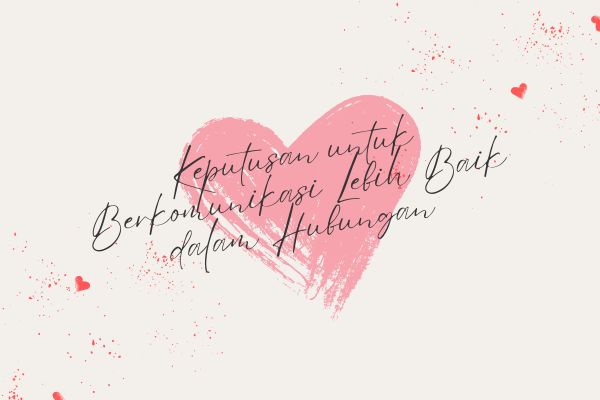 Keputusan untuk
Berkomunikasi Lebih Baik
dalam Hubungan